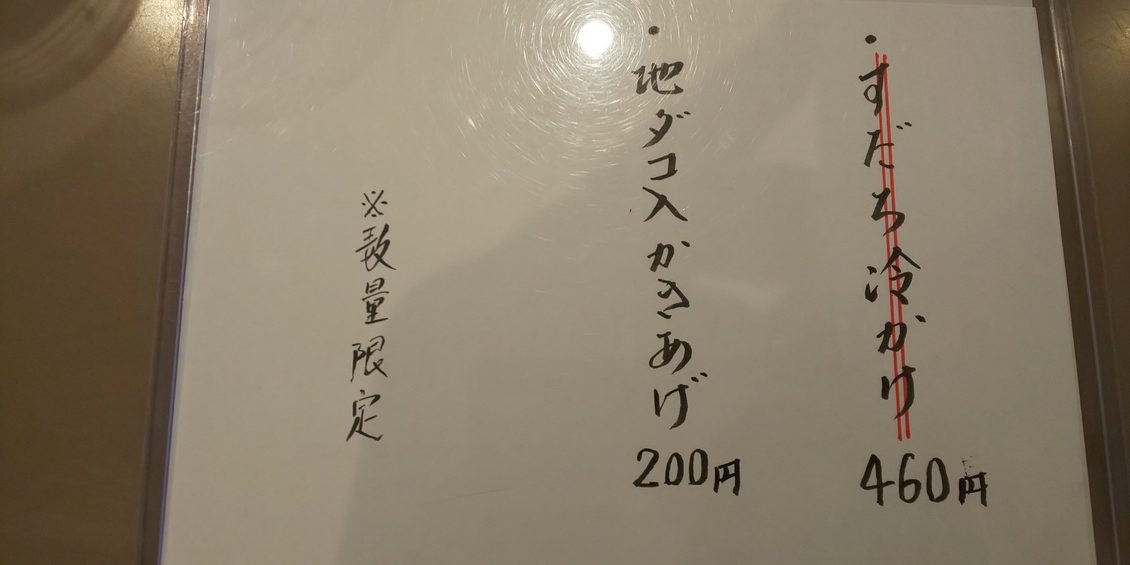 ・すだち冷かけ
460円
・地ダコ入かきあげ
200円
※数量限定